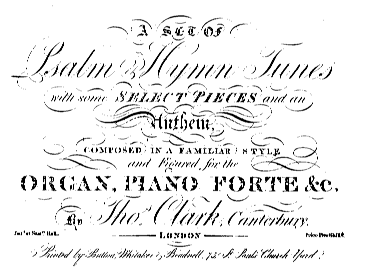 A SET OF
Psalm & Hymn Tunes
with some SELECT PIECES and an
Anthem,
COMPOSED IN A FAMILIAR STYLE
and Figured for the
ORGAN, PIANO FORTE &c,
By Thos. Clark, Canterbury.
LONDON
Printed by Button, Whitaker & Beadnell, 75 St. Pauls Church Yard.